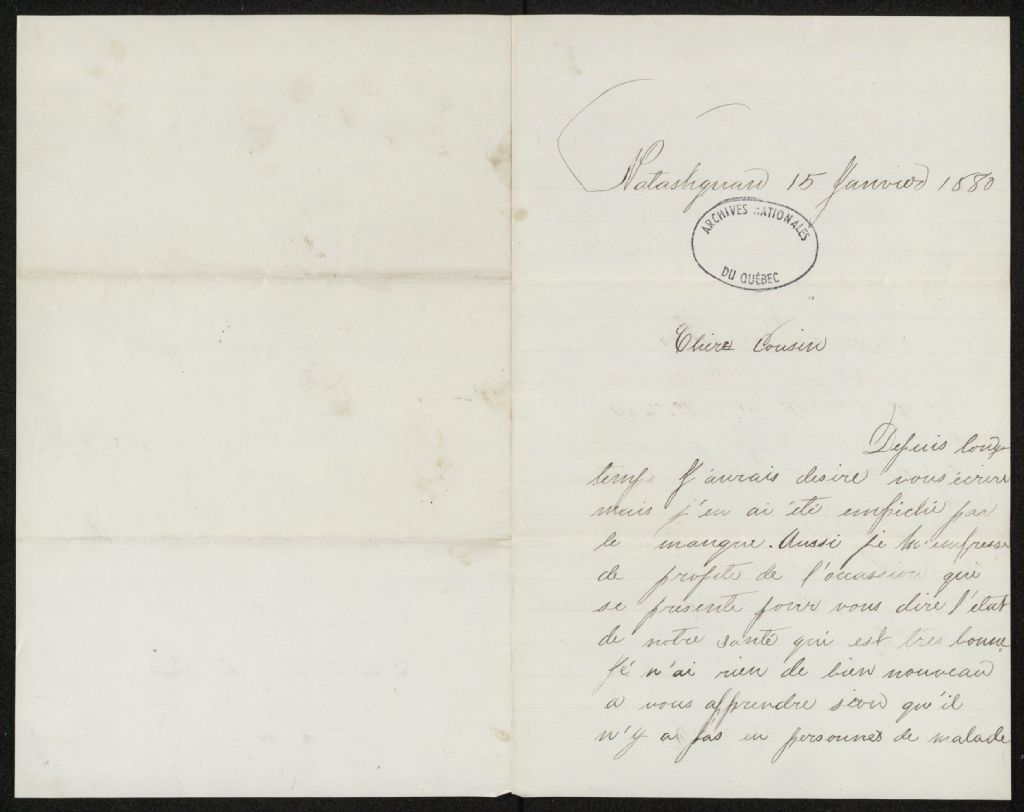 Natashquan 15 Janvier 1880
ARCHIVES NATIONALES
DU QUÉBEC
Chere Cousin
Depuis long
temps J'aurais desire vous écrire
mais j'en ai été empiché par
le manque. Aussi je m'empresse
de profite de l'occassion qui
se présente pour vous dire l'état
de notre santé qui est tres bonne
Jé n'ai rien de bien nouveau
a vous apprendre sion qu'il
n'y a pas eu personnes de malade